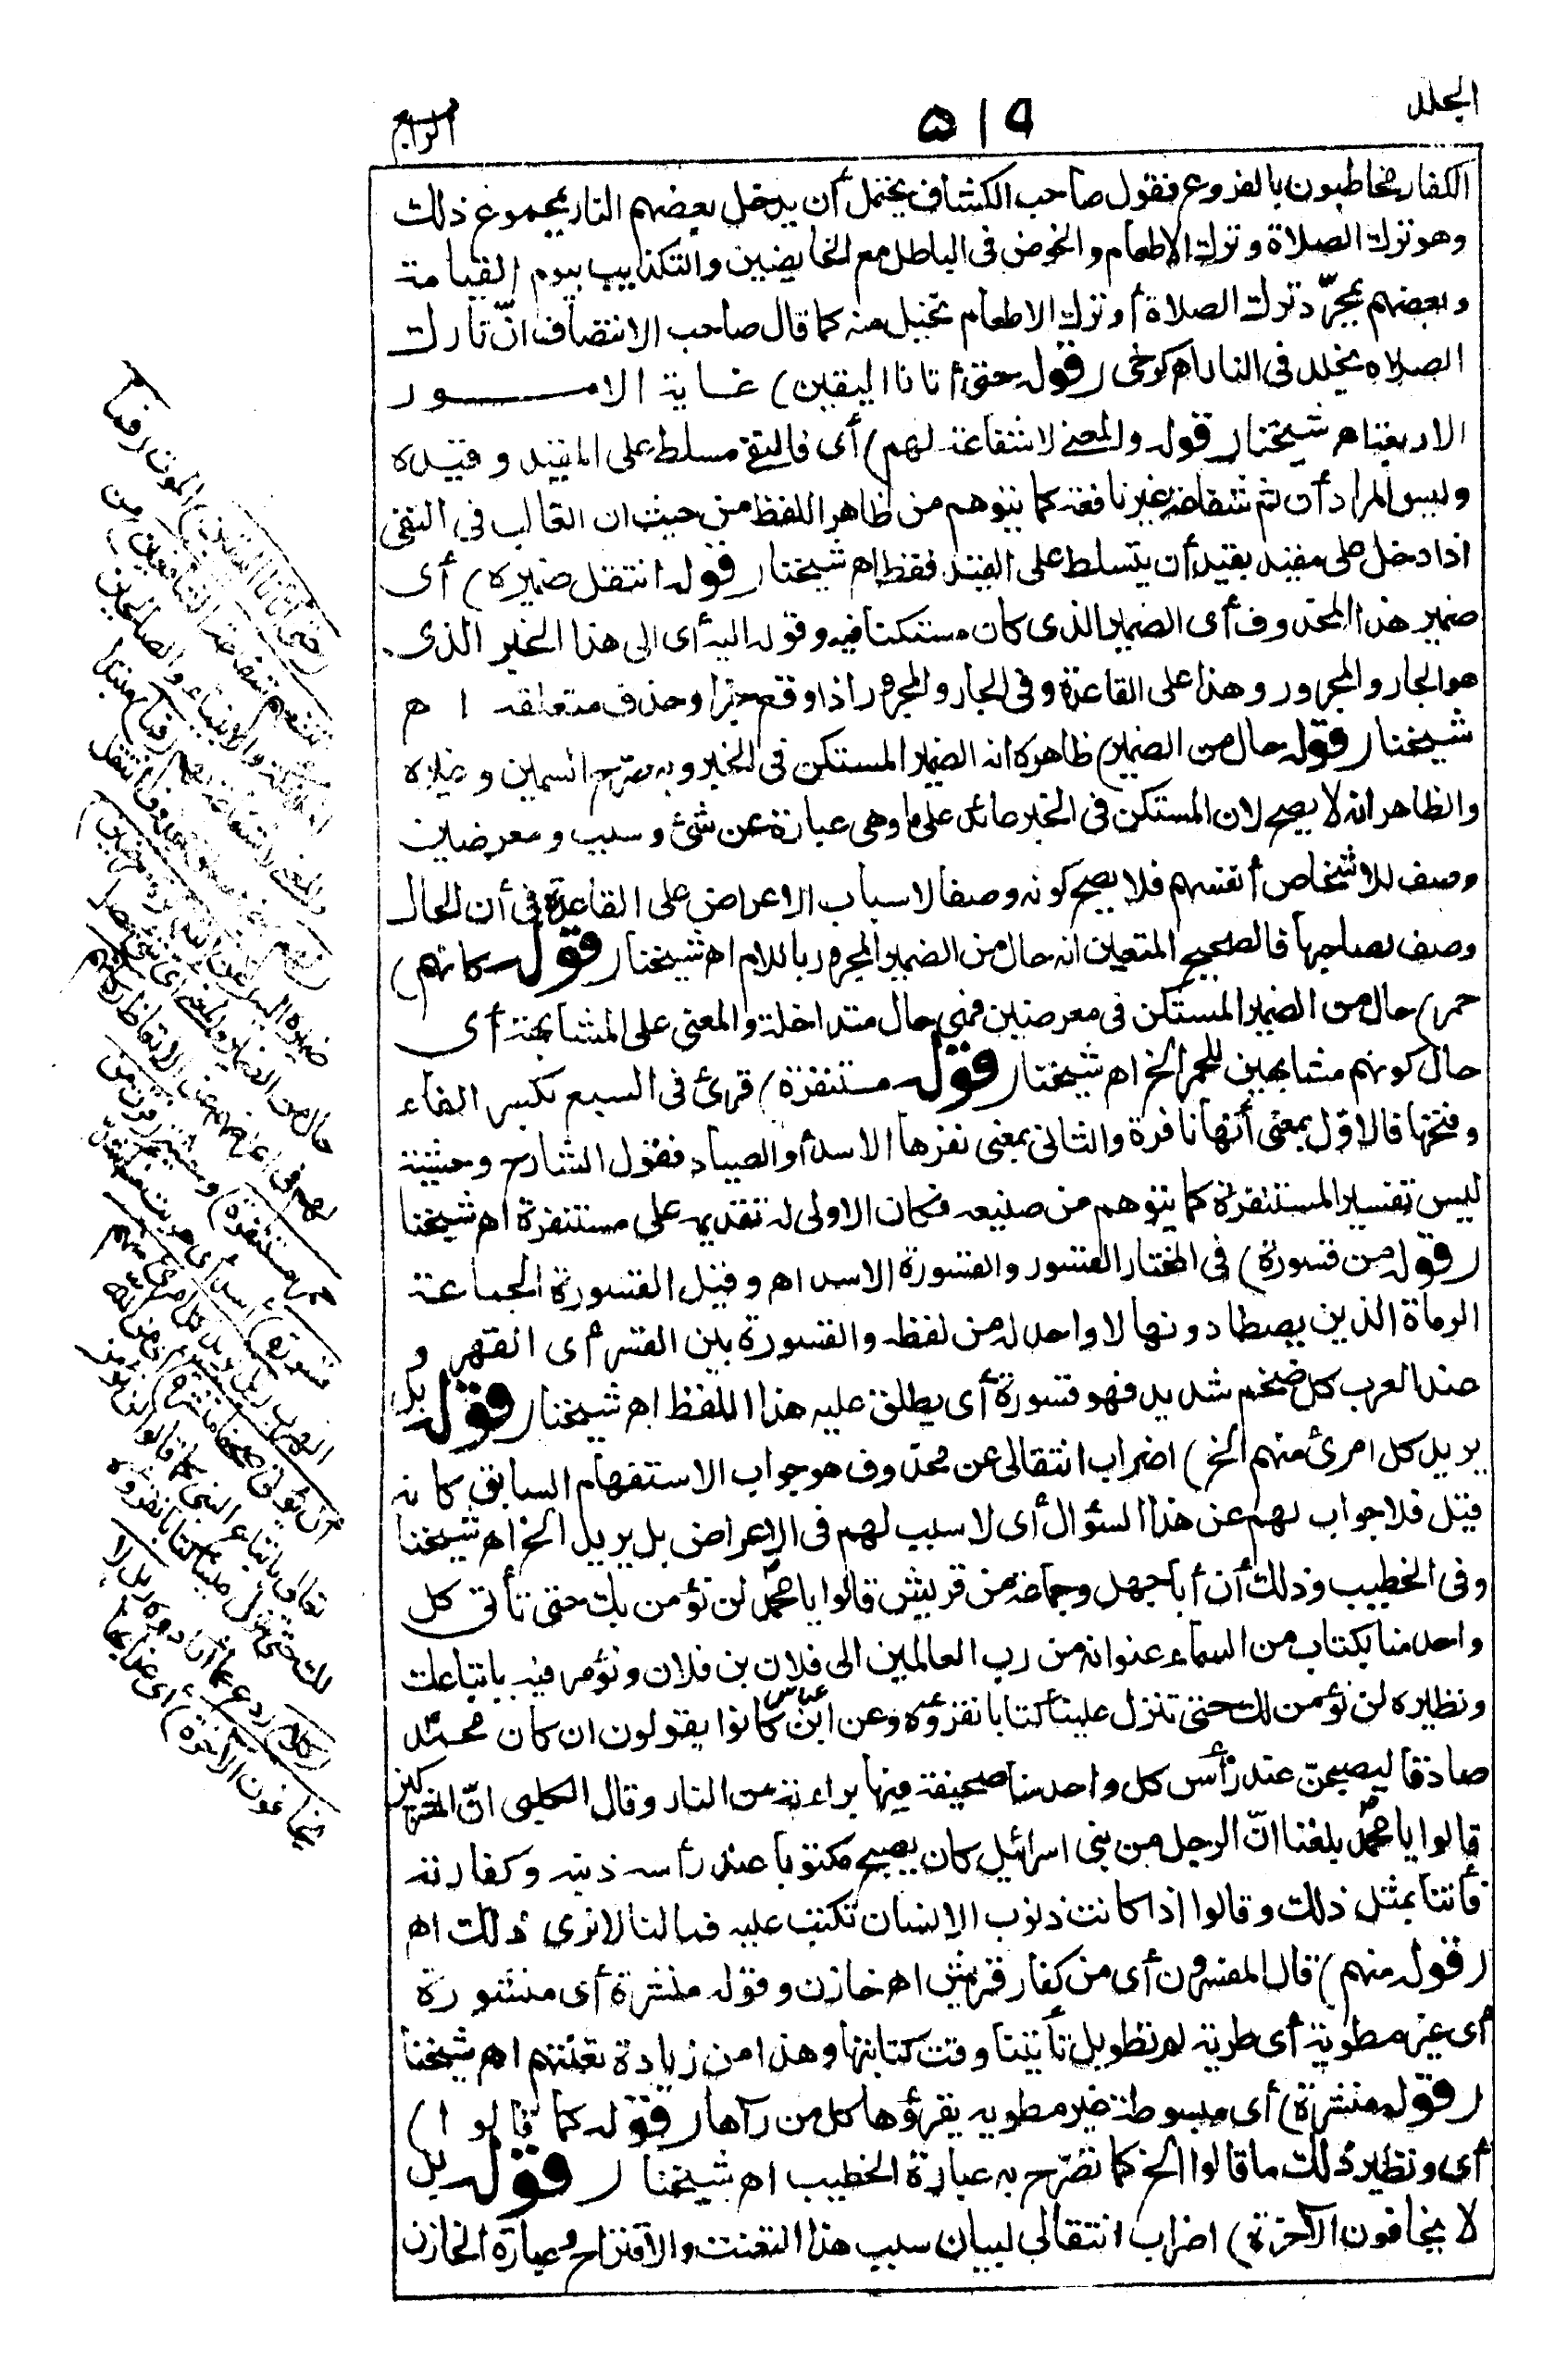 الجلد
٥١٩
الرابع
الكفار مخاطبون بالفروع فقول صاحب الكشاف يحتمل أن يدخل بعضهم النار بمجموع ذلك
وهو ترك الصلاة وترك الإطعام والخوض فى الباطل مع الخايضين والتكذيب بيوم القيامة
وبعضهم بمجرّد ترك الصلاة أو ترك الاطعام تخييل منه كما قال صاحب الانتصاف انّ تارك
الصلاة يخلد فى النار اه كرخى (قوله حتى أتانا اليقين) غاية الامور
الاربعة اه شيخنا (قوله والمعنى لا شفاعة لهم) أى فالنفى مسلط على المقيد وقيده
وليس المراد أن ثم شفاعة غير نافعة كما يتوهم من ظاهر اللفظ من حيث ان الغالب فى النفى
اذا دخل على مقيد بقيد أن يتسلط على القيد فقط اه شيخنا (قوله انتقل ضميره) أى
ضمير هذا المحذوف أى الضمير الذى كان مستكنا فيه وقوله اليه أى الى هذا الخبر الذى
هو الجار والمجرور وهذا على القاعدة فى الجار والمجرور اذا وقع خبرا وحذف متعلقه اه
شيخنا (قوله حال من الضمير) ظاهره انه الضمير المستكن فى الخبر وبه صرّح السمين وغيره
والظاهر انه لا يصح لان المستكن فى الخبر عائد على ما وهى عبارة عن شئ وسبب ومعرضين
وصف للاشخاص أنفسهم فلا يصح كونه وصفا لاسباب الاعراض على القاعدة فى أن الحال
وصف لصاحبها فالصحيح المتعين انه حال من الضمير المجرور باللام اه شيخنا (قوله كانهم)
حمر) حال من الضمير المستكن فى معرضين فهى حال متداخلة والمعنى على المشابهة أى
حال كونهم مشابهين للحمر الخ اه شيخنا (قوله مستنفرة) قرئ فى السبع بكسر الفاء
وفتحها فالاوّل بمعنى أنها نافرة والثانى بمعنى نفرها الاسد أو الصياد فقول الشارح وحشية
ليس تفسيرا لمستنفرة كما يتوهم من صنيعه فكان الاولى له تقديمه على مستنفرة اه شيخنا
(قوله من قسورة) فى المختار القسور والقسورة الاسد اه وقيل القسورة الجماعة
الرماة الذين يصطادونها لا واحد له من لفظه والقسورة بين القسر أى القهر و
عند العرب كل ضخم شديد فهو قسورة أى يطلق عليه هذا اللفظ اه شيخنا (قوله بل
يريد كل امرئ منهم الخ) اضراب انتقالى عن محذوف هو جواب الاستفهام السابق كانه
قيل فلا جواب لهم عن هذا السؤال أى لا سبب لهم فى الاعراض بل يريد الخ اه شيخنا
وفى الخطيب وذلك أن أبا جهل وجماعة من قريش قالوا يا محمد لن نؤمن بك حتى تأتى كل
واحد منا بكتاب من السماء عنوانه من رب العالمين الى فلان بن فلان ونؤمر فيه باتباعك
ونظيره لن نؤمن لك حتى تنزل علينا كتابا نقرؤه وعن ابن عباس كانوا يقولون ان كان محمّد
صادقا ليصبحن عند رأس كل واحد منا صحيفة فيها براءته من النار وقال الكلبى انّ المشركين
قالوا يا محمد بلغنا انّ الرجل من بنى اسرائيل كان يصبح مكتوبا عند رأسه ذنبه وكفارته
فأتنا بمثل ذلك وقالوا اذا كانت ذنوب الإنسان تكتب عليه فما لنا لا نرى ذلك اه
(قوله منهم) قال المفسرون أى من كفار قريش اه خازن وقوله منشرة أى منشورة
أى غير مطوية أى طرية لم تطو بل تأتينا وقت كتابتها وهذا من زيادة تعنتهم اه شيخنا
(قوله منشرة) أى مبسوطة غير مطوية يقرؤها كل من رآها (قوله كما قالوا)
أى ونظير ذلك ما قالوا الخ كما تصرّح به عبارة الخطيب اه شيخنا (قوله بل
لا يخافون الآخرة) اضراب انتقالى لبيان سبب هذا التعنت والاقتراح وعبارة الخازن
(حتى أتانا اليقين) الموت (فما
تنفعهم شفاعة الشافعين) من
الملائكة والانبياء والصالحين
والمعنى لا شفاعة لهم (فما) مبتدا
(لهم) خبره متعلق بمحذوف انتقل
ضميره اليه (عن التذكرة معرضين)
حال من الضمير والمعنى أى شئ حصل
لهم فى اعراضهم عن الاتعاظ (كانهم
حمر مستنفرة) وحشية (فرت من
قسورة) أسد أى هربت منه أشدّ
الهرب (بل يريد كل امرئ منهم
أن يؤتى صحفا منشرة) أى من الله
تعالى باتباع النبى كما قالوا لن نؤمن
لك حتى تنزل علينا كتابا نقرؤه
(كلا) ردع عما أرادوه (بل لا
يخافون الآخرة) أى عذابها